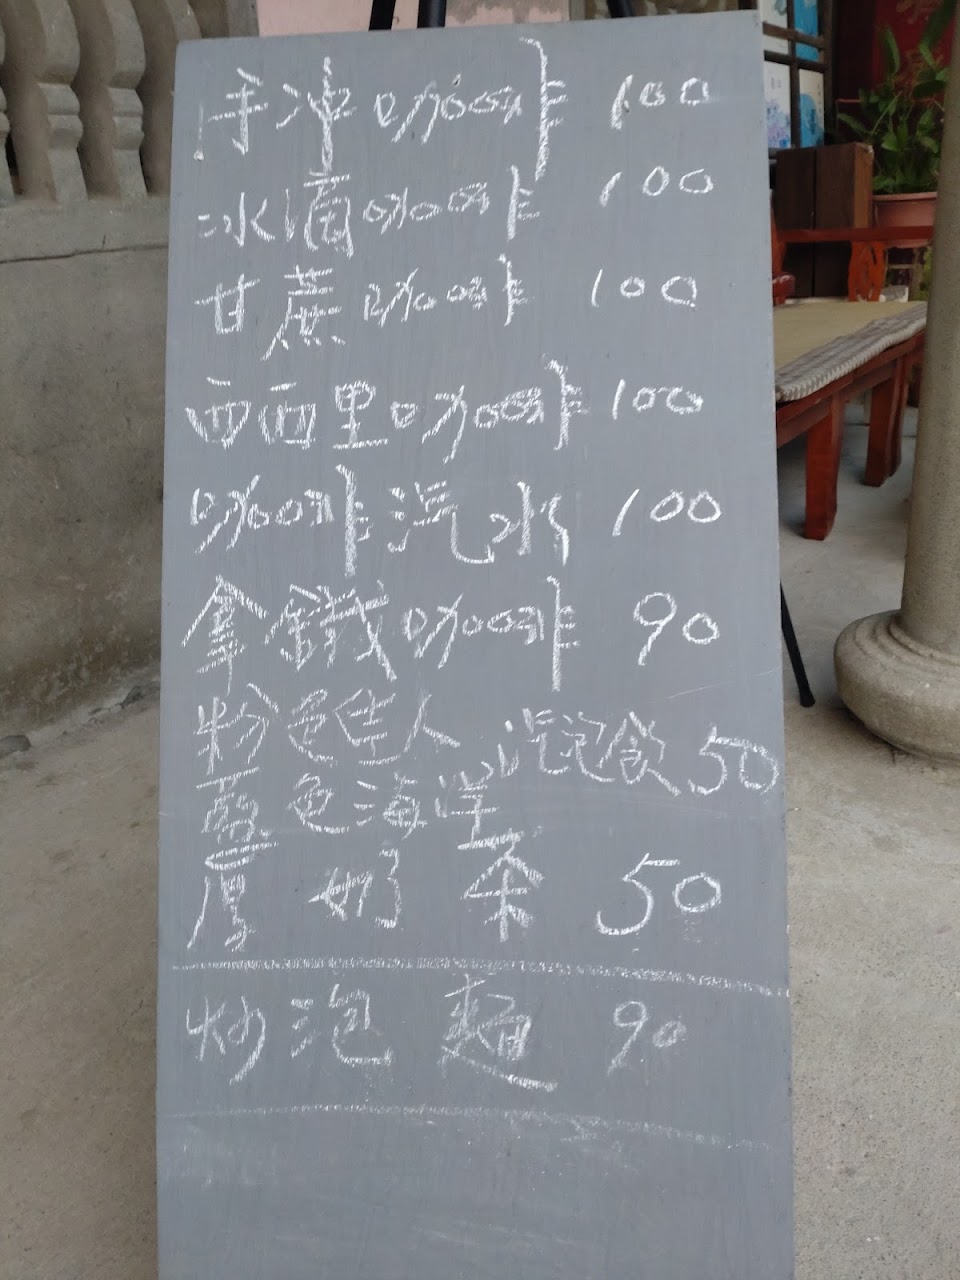 手冲咖啡 100
冰滴咖啡 100
甘蔗咖啡 100
西西里咖啡 100
咖啡汽水 100
拿鐵咖啡 90
粉色佳人 汽泡飲 50
藍色海洋
厚奶茶 50
炒泡麵 90